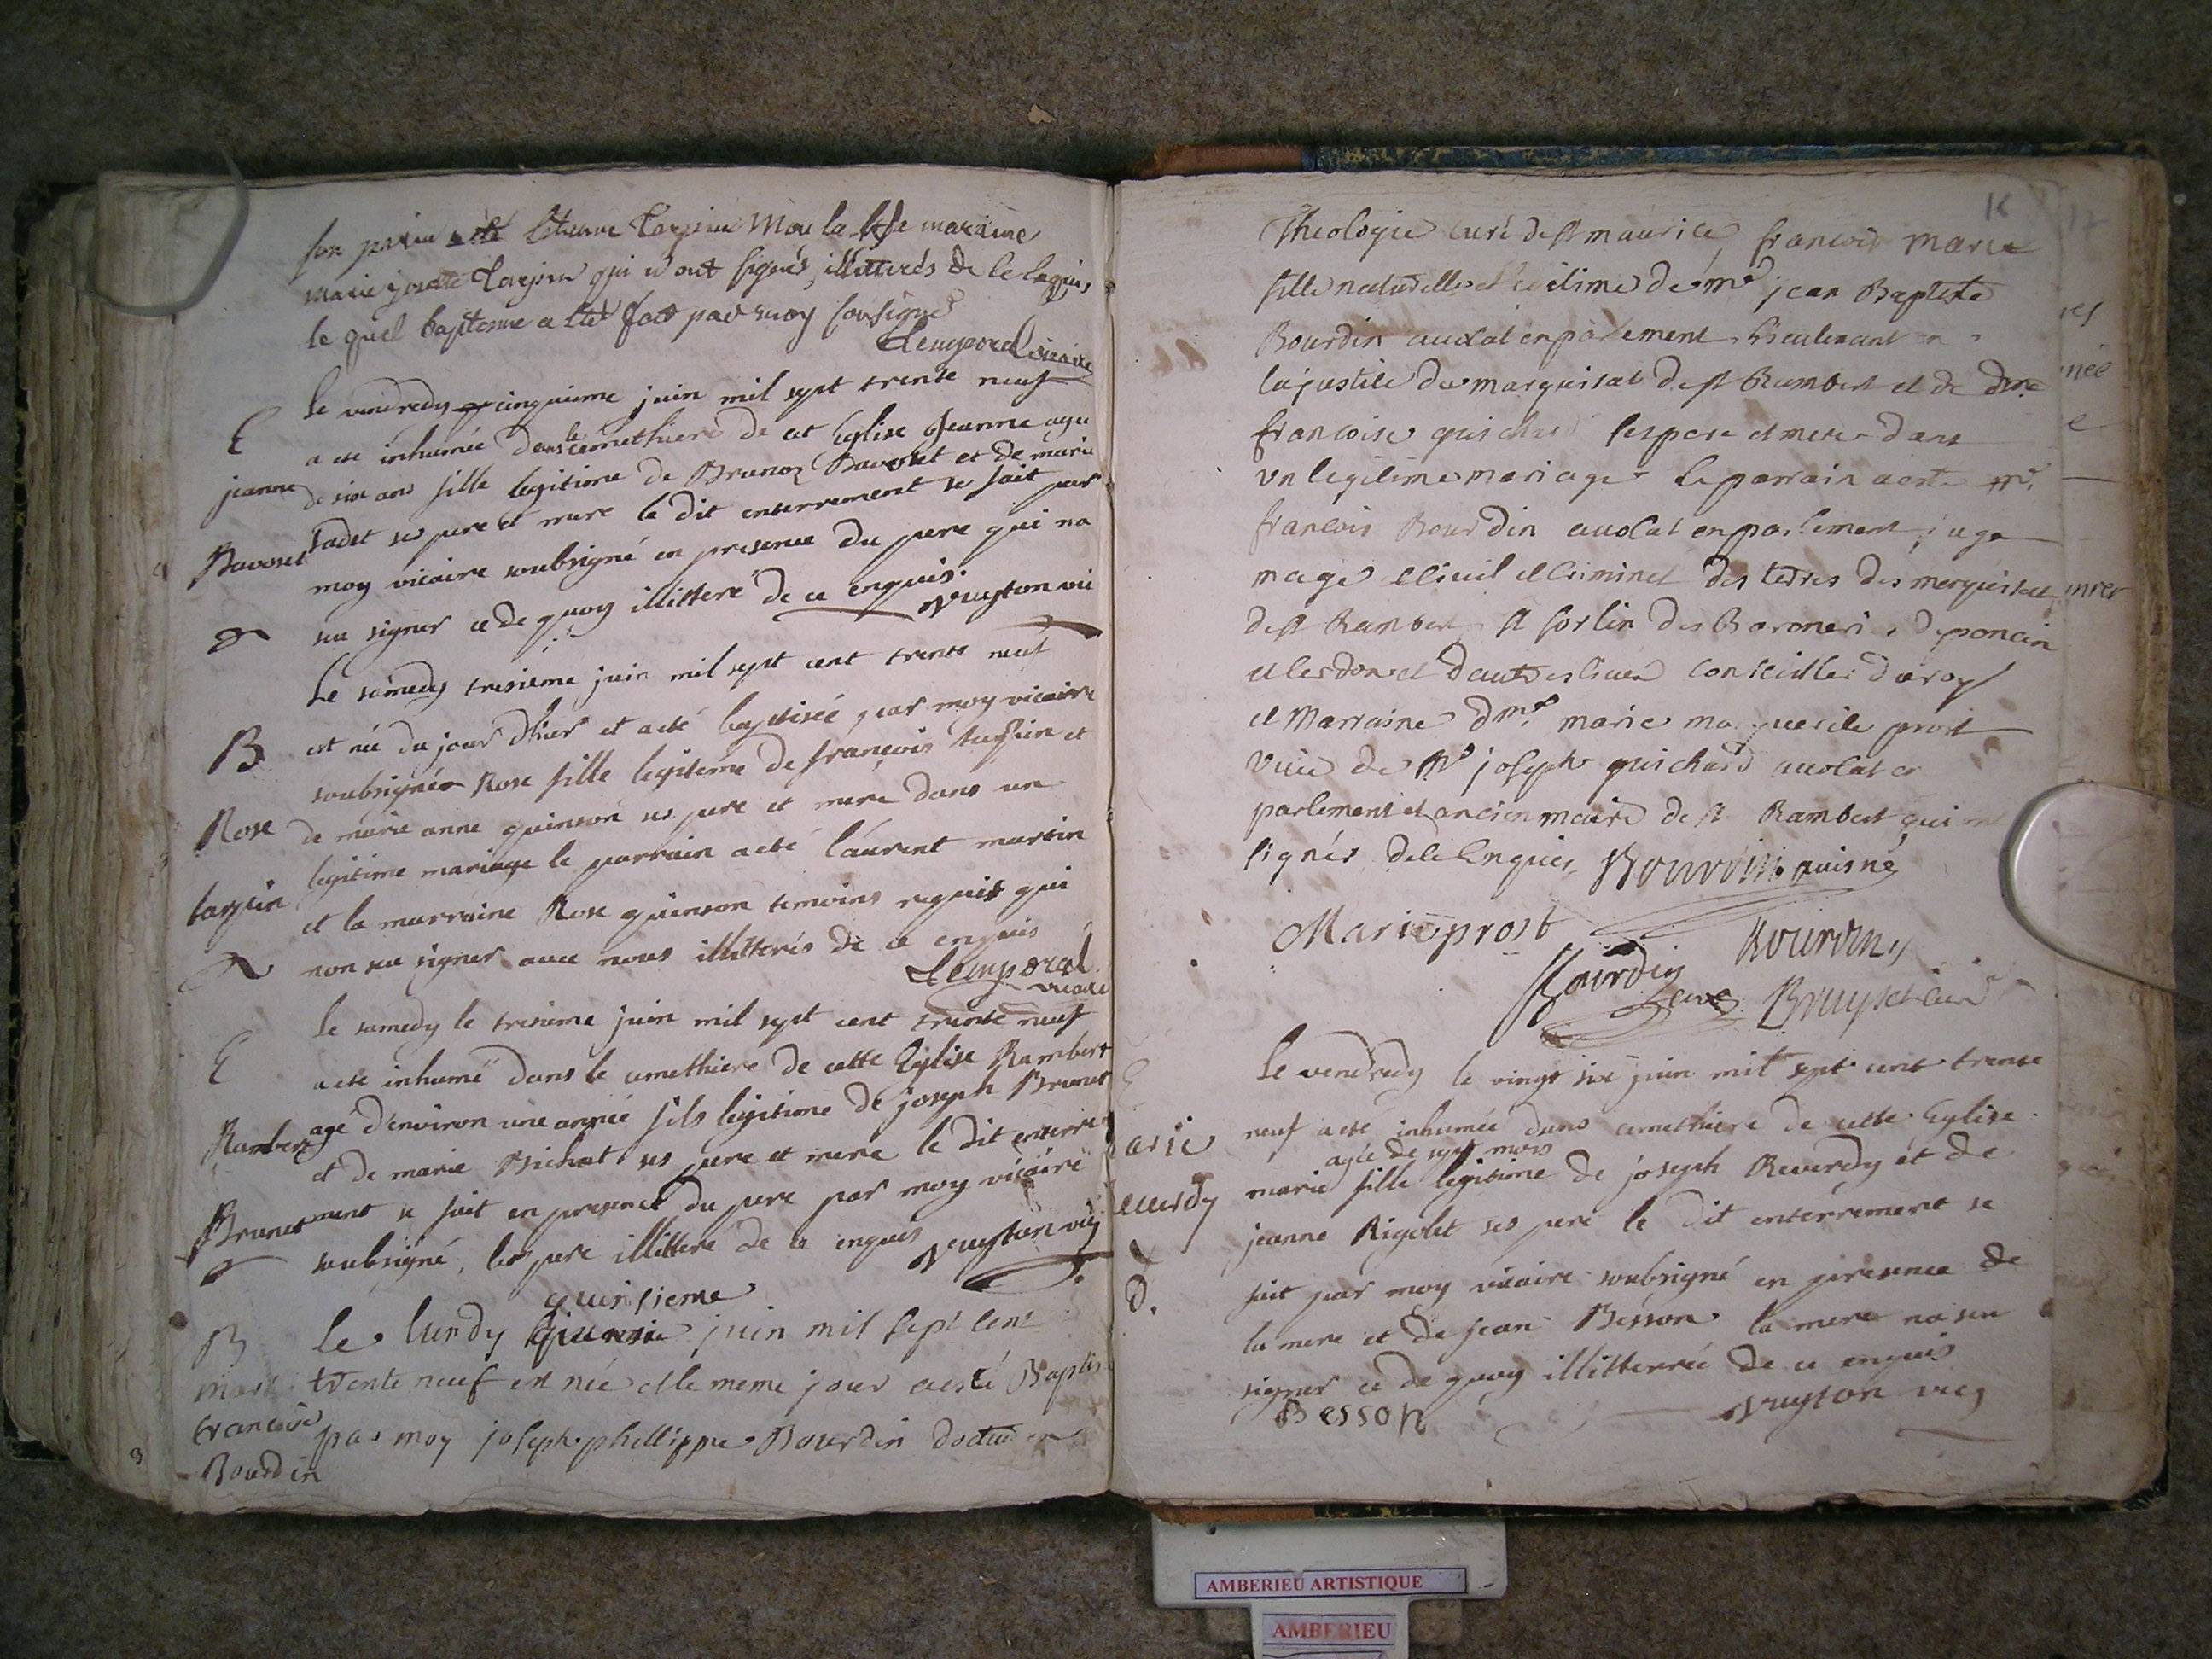 son parin Estienne Tarpin la marine
marie Tarpin qui n'ont signés, illitterés de le enquis
le quel bapteme a eté fait par moy sousigné
Temporal vicaire
E
jeanne
Bavoset
le vendredy cinquieme juin mil sept trente neuf
a eté inhumée dans le cemethiere de cet Eglise jeanne agee
de six ans fille legitime de Bavoset et de marie
ses pere et mere le dit enterrement se fait par
moy vicaire soubsigné en presence du pere qui na
seu signer ce de quoy illitteré de ce enquis.
vuyton vic
B
Rose
tarpin
Le samedy tresième juin mil sept cent trente neuf
est née du jour d'hier et a eté baptisée par moy vicaire
soubsigné Rose fille legiteme de françois tarpin et
de marie anne guinson ses pere et mere dans un
legitime mariage le parrain a eté láurent martin
et la marraine Rose guinson temoins requis qui
non seu signer avec nous illitterés de ce enquis
Temporal
vicaire
E
Rambert
Brunet
le samedy le tresieme juin mil sept cent trente neuf
a eté inhumé dans le cemethiere de cette Eglise Rambert
agé d'environ une année fils legitime de joseph Brunet
et de marie Bichat ses pere et mere le dit enterre
ment se fait en presence du pere par moy vicaire
soubsigné, les pere illittere de ce enquis
vuyton vic
B
marie
francoise
Bourdin
quinsieme
Le lundy juin mil sept cent
trente neuf est née et le meme jour a esté Baptis
par moy joseph phillippe Bourdin docteur en
Theologie curé de st maurice francoise marie
fille naturelle et legitime de mr jean Baptiste
Bourdin auocat en parlement Lieutenant en
la justice du marquisat de st Rambert et de dme
francoise guichard ses pere et mere dans
vn legitime mariage le parrain a esté mr
francois Bourdin auocat en parlement juge
mage Ciuil et Criminel des terres des marquisat
de st Rambert st sorlin des Baroneries de poncin
et cerdon et d'autres lieux conseiller du roy
et Marraine dme marie marguerite prost
veuve de Mr joseph guichard auocat en
parlement et ancien maire de st Rambert qui ont
signés de le Enquis, Bourdin puisné
Marie prost
Bourdin
Bourdin
curé
Bruyset curé
arie
euerdy
d.
Le vendredy le vingt six juin mil sept cent trente
neuf a eté inhumée dans cemethiere de cette Eglise
agée de sept mois
marie fille legitime de joseph Reverdy et de
jeanne Rigolet ses pere le dit enterrément se
fait par moy vicaire soubsigné en presence de
la mere et de jean Besson la mere na seu
signer ce de quoy illitterrée de ce enquis
Besson
vuyton vic
AMBERIEU ARTISTIQUE
AMBERIEU